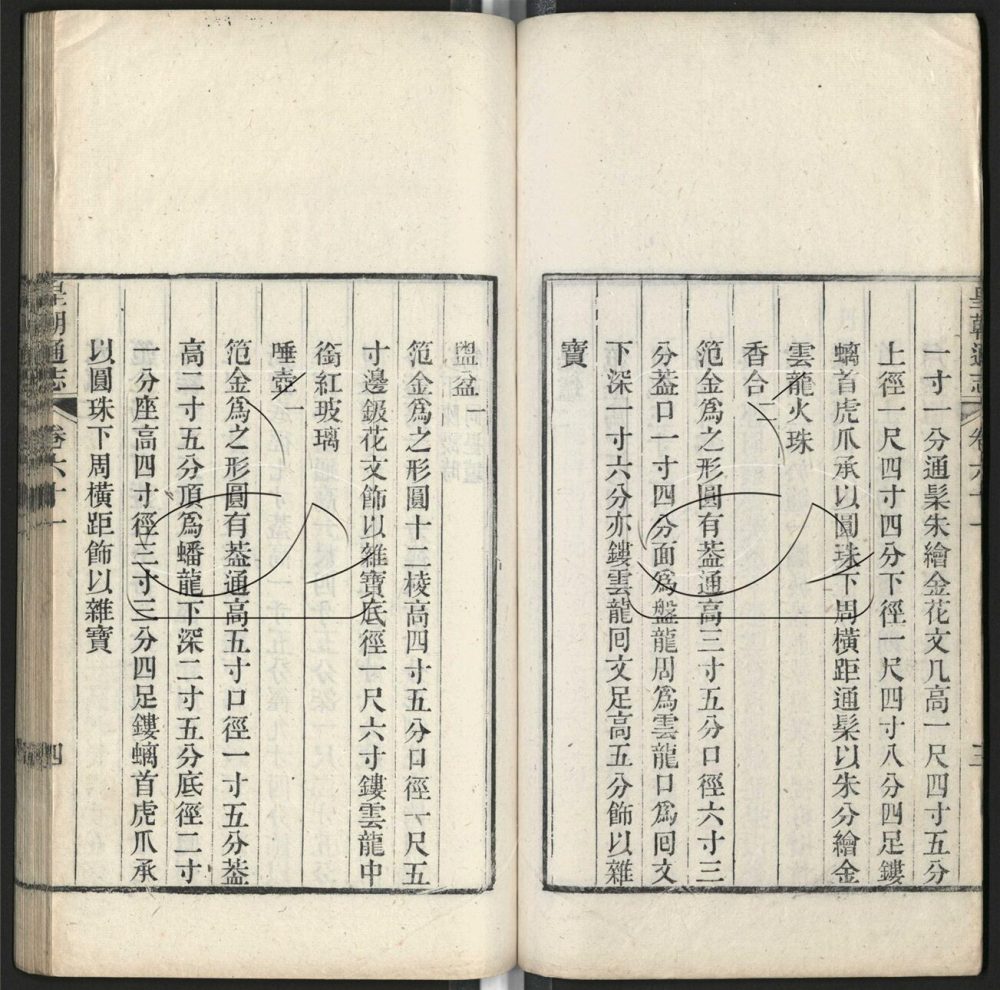 皇朝通志 卷六十一 三
一寸一分通髤朱繪金花文几高一尺四寸五分
上徑一尺四寸四分下徑一尺四寸八分四足鏤
螭首虎爪承以圓珠下周橫距通髤以朱分繪金
雲龍火珠
香合二
笵金爲之形圓有葢通高三寸五分口徑六寸三
分葢口一寸四分面爲盤龍周爲雲龍口爲囘文
下深一寸六分亦鏤雲龍囘文足高五分飾以雜
寶
盥盆一
笵金爲之形圓十二棱高四寸五分口徑一尺五
寸邊鈒花文飾以雜寶底徑一尺六寸鏤雲龍中
銜紅玻璃
唾壺一
笵金爲之形圓有葢通高五寸口徑一寸五分葢
高二寸五分頂爲蟠龍下深二寸五分底徑二寸
一分座高四寸徑三寸三分四足鏤螭首虎爪承
以圓珠下周橫距飾以雜寶
皇朝通志 卷六十一 四